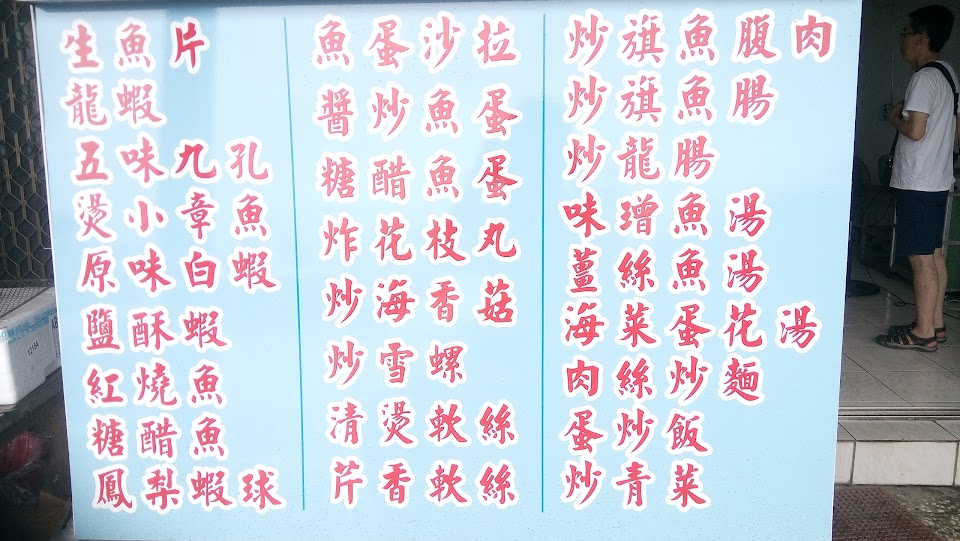 生魚片
龍蝦
五味九孔
燙小章魚
原味白蝦
鹽酥蝦
紅燒魚
糖醋魚
鳳梨蝦球
魚蛋沙拉
醬炒魚蛋
糖醋魚蛋
炸花枝丸
炒海香菇
炒雪螺
清燙軟絲
芹香軟絲
炒旗魚腹肉
炒旗魚腸
炒龍腸
味璔魚湯
薑絲魚湯
海菜蛋花湯
肉絲炒麵
蛋炒飯
炒青菜